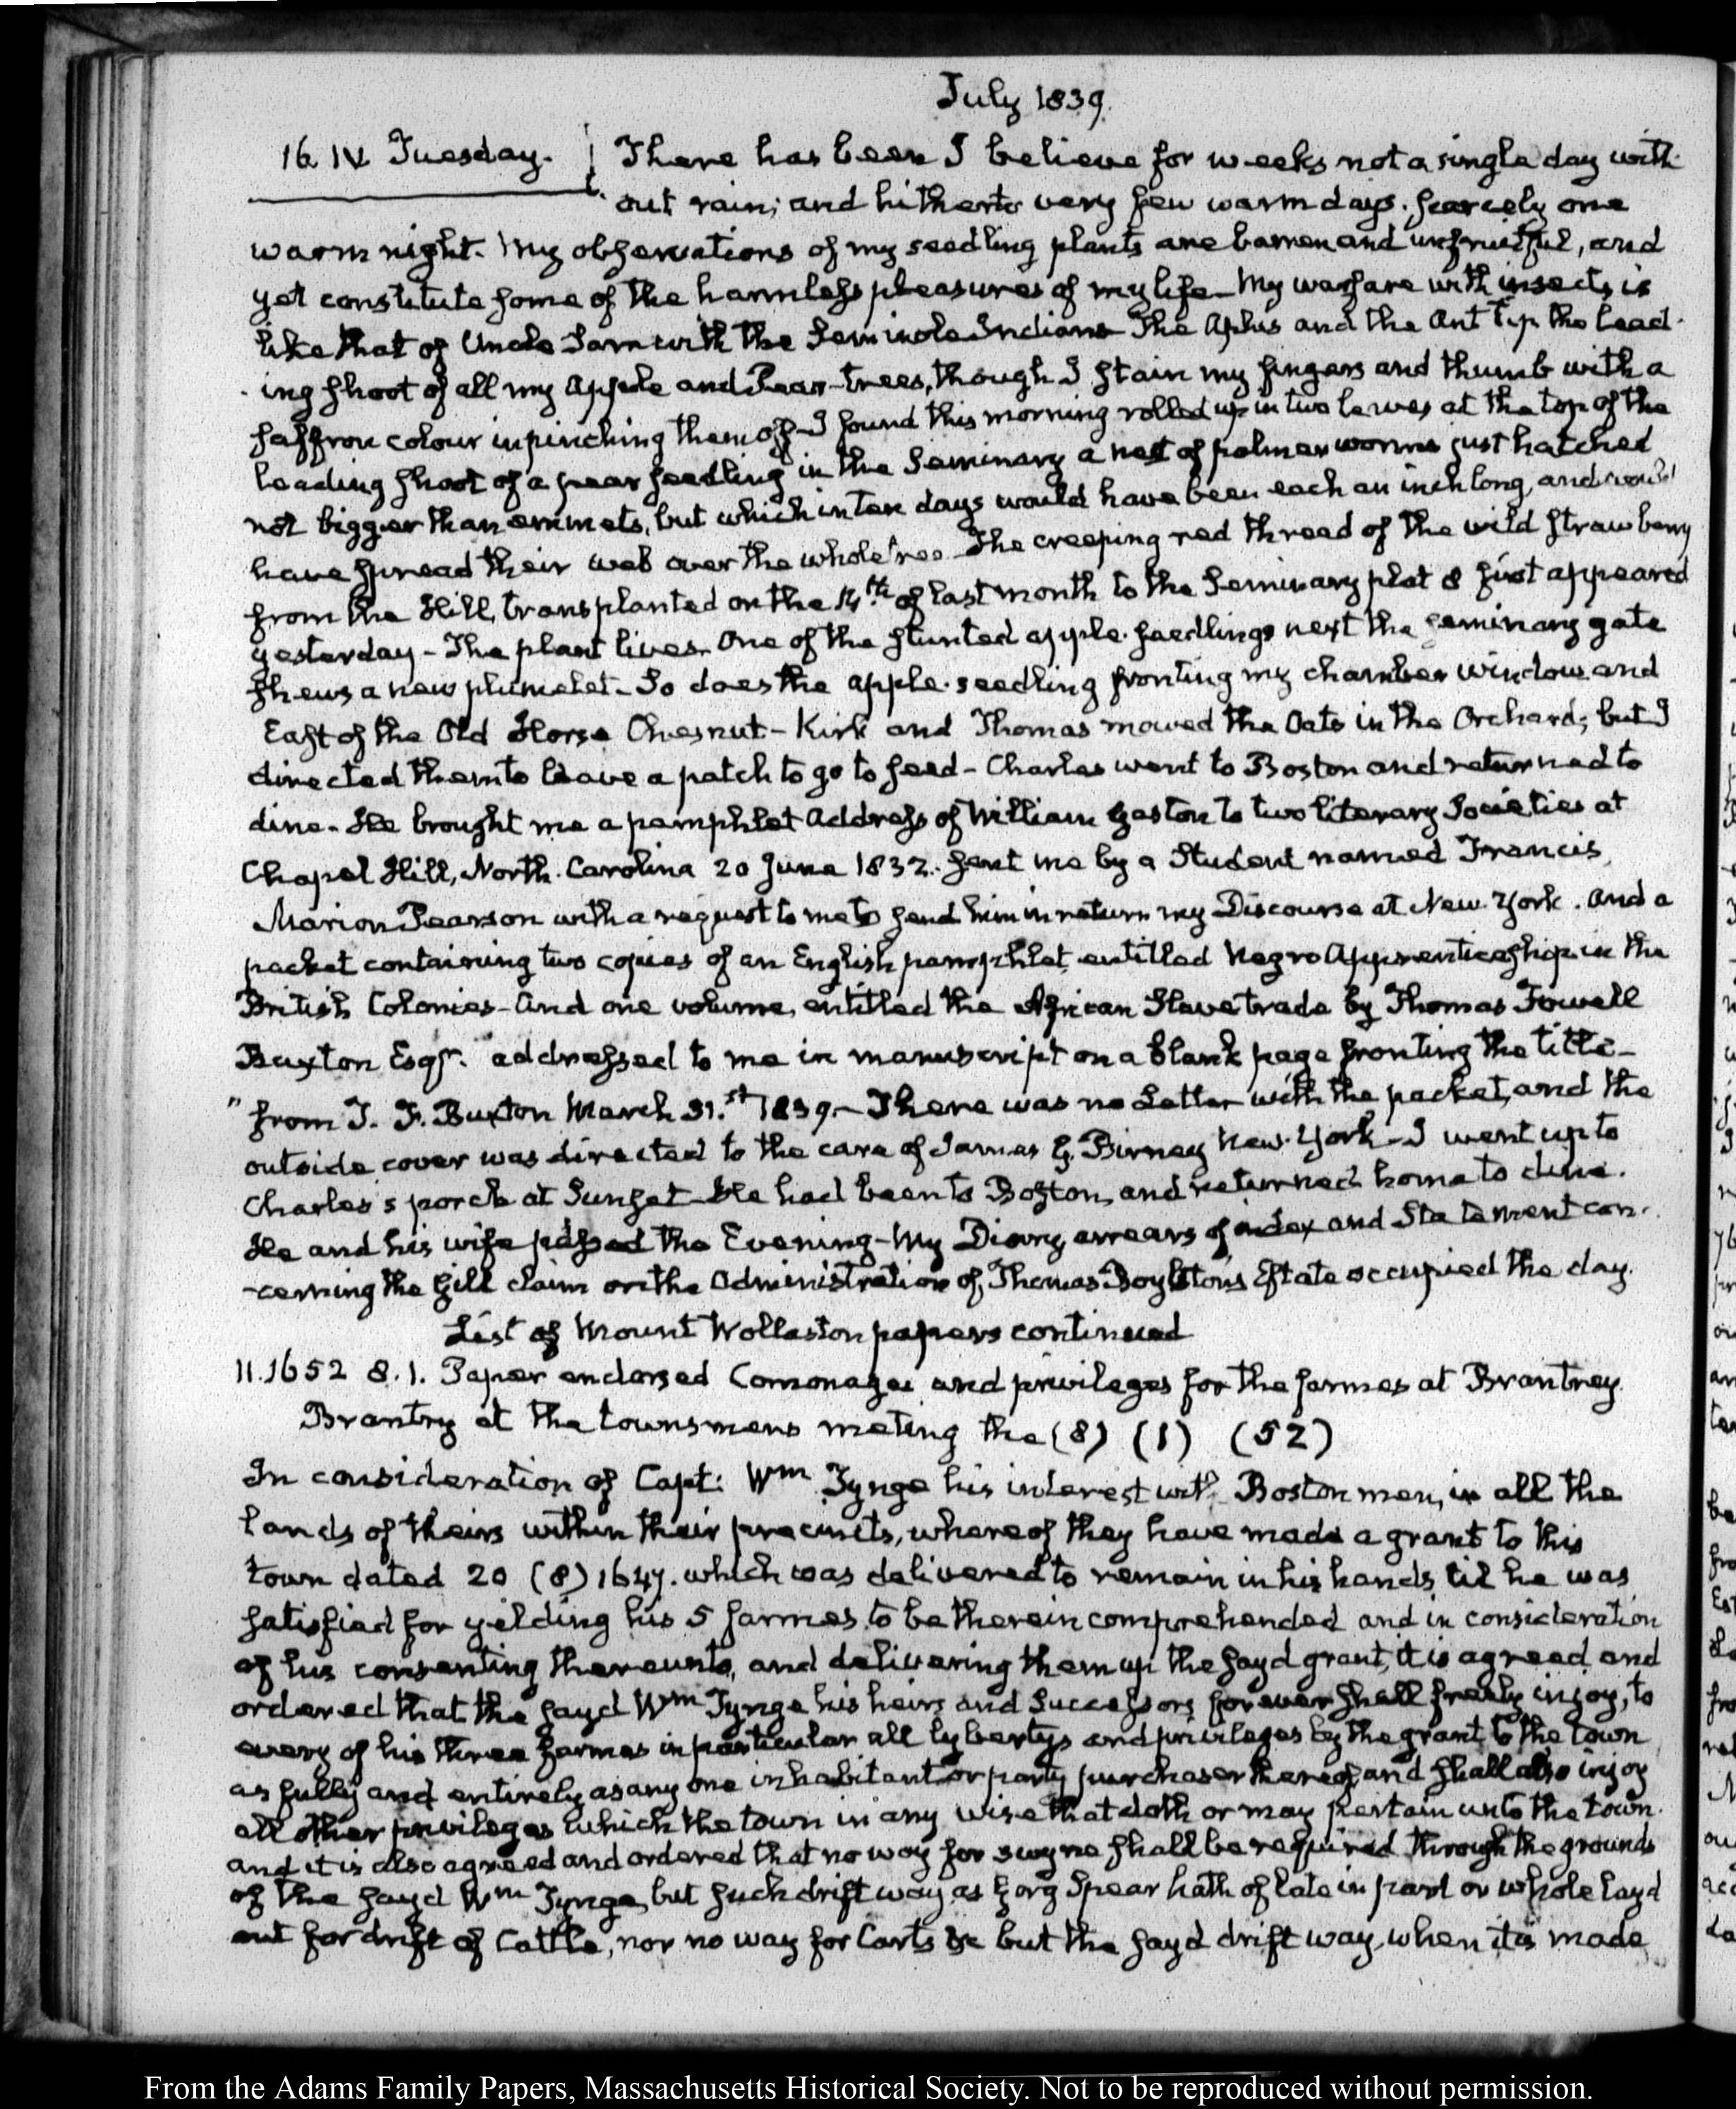 July 1839.
16. IV. Tuesday. There has been I believe for weeks not a single day with-
out rain; and hitherto very few warm days. Scarcely one
warm night. My observations of my seedling plants are barren and unfruitful, and
yet constitute some of the harmless pleasures of my life – My warfare with insects is
like that of Uncle Sam with the Seminole Indians The Aphis and the Ant tip the lead-
ing shoot of all my Apple and Pear-trees, though I stain my fingers and thumb with a
saffron colour in pinching them off – I found this morning rolled up in two leaves at the top of the
leading shoot of a pear seedling in the Seminary a nest of palmer worms just hatched
not bigger than emmets, but which in ten days would have been each an inch long, and would
have spread their web over the whole tree. The creeping red thread of the wild strawberry
from the Hill, transplanted on the 14th. of last month to the Seminary plat 8 first appeared
yesterday – The plant lives. One of the stunted apple-seedlings next the seminary gate
shews a new plumelet – So does the apple-seedling fronting my chamber window and
East of the Old Horse Chesnut – Kirk and Thomas mowed the Oats in the Orchard; but I
directed them to leave a patch to go to seed – Charles went to Boston and returned to
dine – He brought me a pamphlet Address of William Gaston to two literary Societies at
Chapel Hill, North-Carolina 20 June 1832. sent me by a Student named Francis
Marion Pearson with a request to me to send him in return my Discourse at New-York. And a
packet containing two copies of an English pamphlet entitled Negro Apprenticeship in the
British Colonies – And one volume, entitled the African Slave trade by Thomas Fowell
Buxton Esqr. addressed to me in manuscript on a blank page fronting the title –
"from T. F. Buxton March 31.st 1839 – There was no Letter with the packet, and the
outside cover was directed to the care of James G. Birney New-York – I went up to
Charles's porch at Sunset – He had been to Boston, and returned home to dine.
He and his wife passed the Evening – My Diary, arrears of index and Statement con-
-cerning the Gill claim on the Administration of Thomas Boylston's Estate occupied the day.
List of Mount Wollaston papers continued
11. 1652 8. 1. Paper endorsed Comonages and privileges for the farmes at Brantrey.
Brantry at the townsmens meting the (8) (1) (52)
In consideration of Capt: Wm Tynge his interest with Boston men, in all the
lands of theirs within their precincts, whereof they have made a grant to this
town dated 20 (8) 1647. which was delivered to remain in his hands til he was
satisfied for yeilding his 5 farmes to be therein comprehended and in consideration
of his consenting thereunto, and delivering them up the sayd grant, it is agreed and
ordered that the sayd Wm Tynge his heirs and Successors forever shall freely injoy, to
every of his three farmes in particular all lybertys and privileges by the grant to the town
as fully and entirely as any one inhabitant or party purchaser thereof and shall also injoy
all other privileges which the town in any wise that doth or may pertain unto the town.
and it is also agreed and ordered that no way for swyne shall be required through the grounds
of the sayd Wm Tynge, but such drift way as Gorg Spear hath of late in part or whole layd
out for drift of Cattle, nor no way for Carts &c but the sayd drift way, when it is made
From the Adams Family Papers, Massachusetts Historical Society. Not to be reproduced without permission.